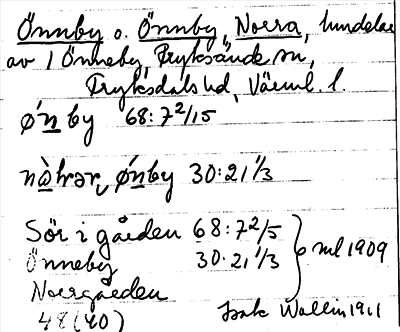 Önnby o. Önnby, Norra, lundelar
av 1 Önneby, Fryksände sn,
Fryksdals hd, Värml. l.
ǿn by 68:7²/15
nå̀hrar ǿnby 30:21⅓
Sör i gården 68:7²/5
Önneby 30.21⅓ } ml 1909
Norrgården
48(40) Isak Wallin 1911